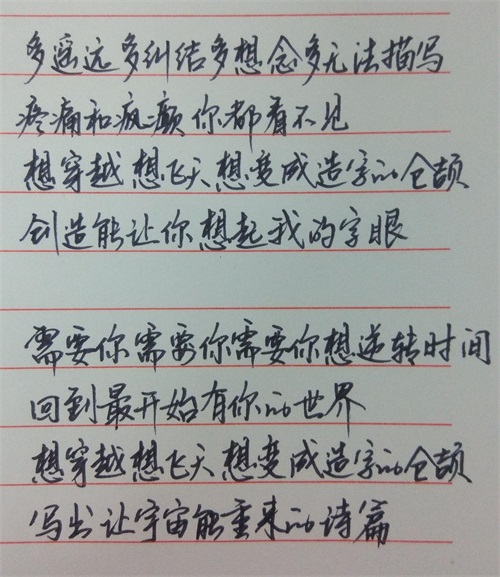 多遥远多纠结多想念多无法描写
疼痛和疯癫你都看不见
想穿越想飞天想变成造字的仓颉
创造能让你想起我的字眼
需要你需要你需要你想逆转时间
回到最开始有你的世界
想穿越想飞天想变成造字的仓颉
写出让宇宙能重来的诗篇